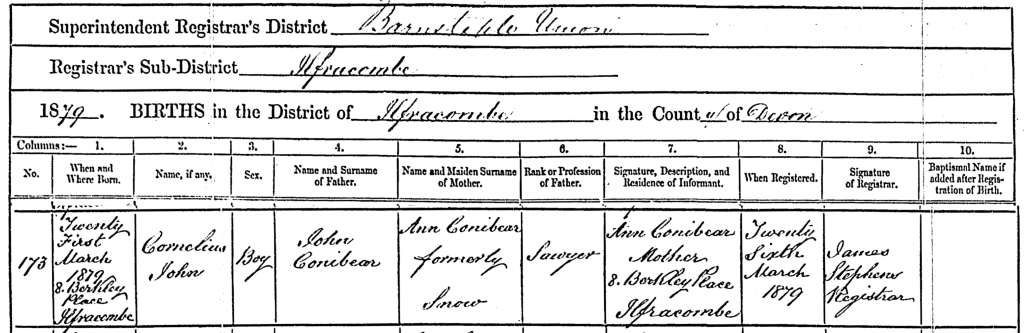 Superintendent Registrar's District Barnstaple Union
Registrar's Sub-District Ilfracombe
1879. BIRTHS in the District of Ilfracombe in the County of Devon
Columns:— 1. 2. 3. 4. 5. 6. 7. 8. 9. 10.
No. When and Where Born. Name, if any. Sex. Name and Surname of Father. Name and Maiden Surname of Mother. Rank or Profession of Father. Signature, Description, and Residence of Informant. When Registered. Signature of Registrar. Baptismal Name if added after Registration of Birth.
173
Twenty
First
March
1879
8. Berkley
Place
Ilfracombe
Cornelius
John
Boy
John
Conibear
Ann Conibear
formerly
Snow
Sawyer
Ann Conibear
Mother
8. Berkley Place
Ilfracombe
Twenty
Sixth
March
1879
James
Stephens
Registrar